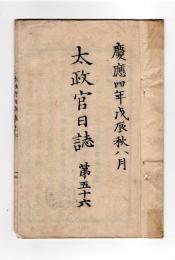 慶應四年戊辰秋八月
太政官日誌 第五十六